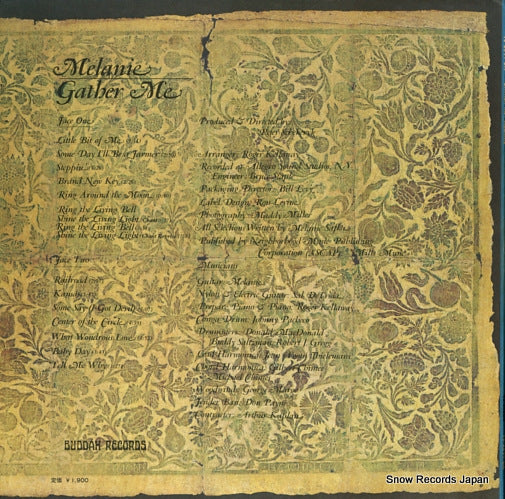 Melanie
Gather Me
Face One
Little Bit of Me
Some Day I'll Be a Farmer
Steppin
Brand New Key
Ring Around the Moon
Ring the Living Bell
Shine the Living Light
Ring the Living Bell
Shine the Living Light
Face Two
Railroad
Kansas
Some Say (I Got Devil)
Center of the Circle
What Wondrous Love
Baby Day
Tell Me Why
BUDDAH RECORDS
定価 ¥1,900
Produced & Directed by
Peter Schekeryk
Arranger: Roger Kellaway
Recorded at Allegro Sound Studios, N.Y.
Engineer: Bruce Staple
Packaging Director: Bill Levy
Label Design: Ron Levine
Photography: Maddy Miller
All Selections Written by Melanie Safka
Published by Neighborhood Music Publishing
Corporation (ASCAP) Music
Musicians
Guitar: Melanie
Nylon & Electric Guitar: Sal DiTroia
Prepare Piano & Piano: Roger Kellaway
Conga Drum: Johnny Pacheco
Drummers: Donald MacDonald
Buddy Saltzman, Robert J. Gregg
Thielemans
Chord Harmonica:
Michael Chimes
Woodwinds: George Marge
Tender Ban: Don Payne
Contractor: Arthur Kaplan
Snow Records Japan